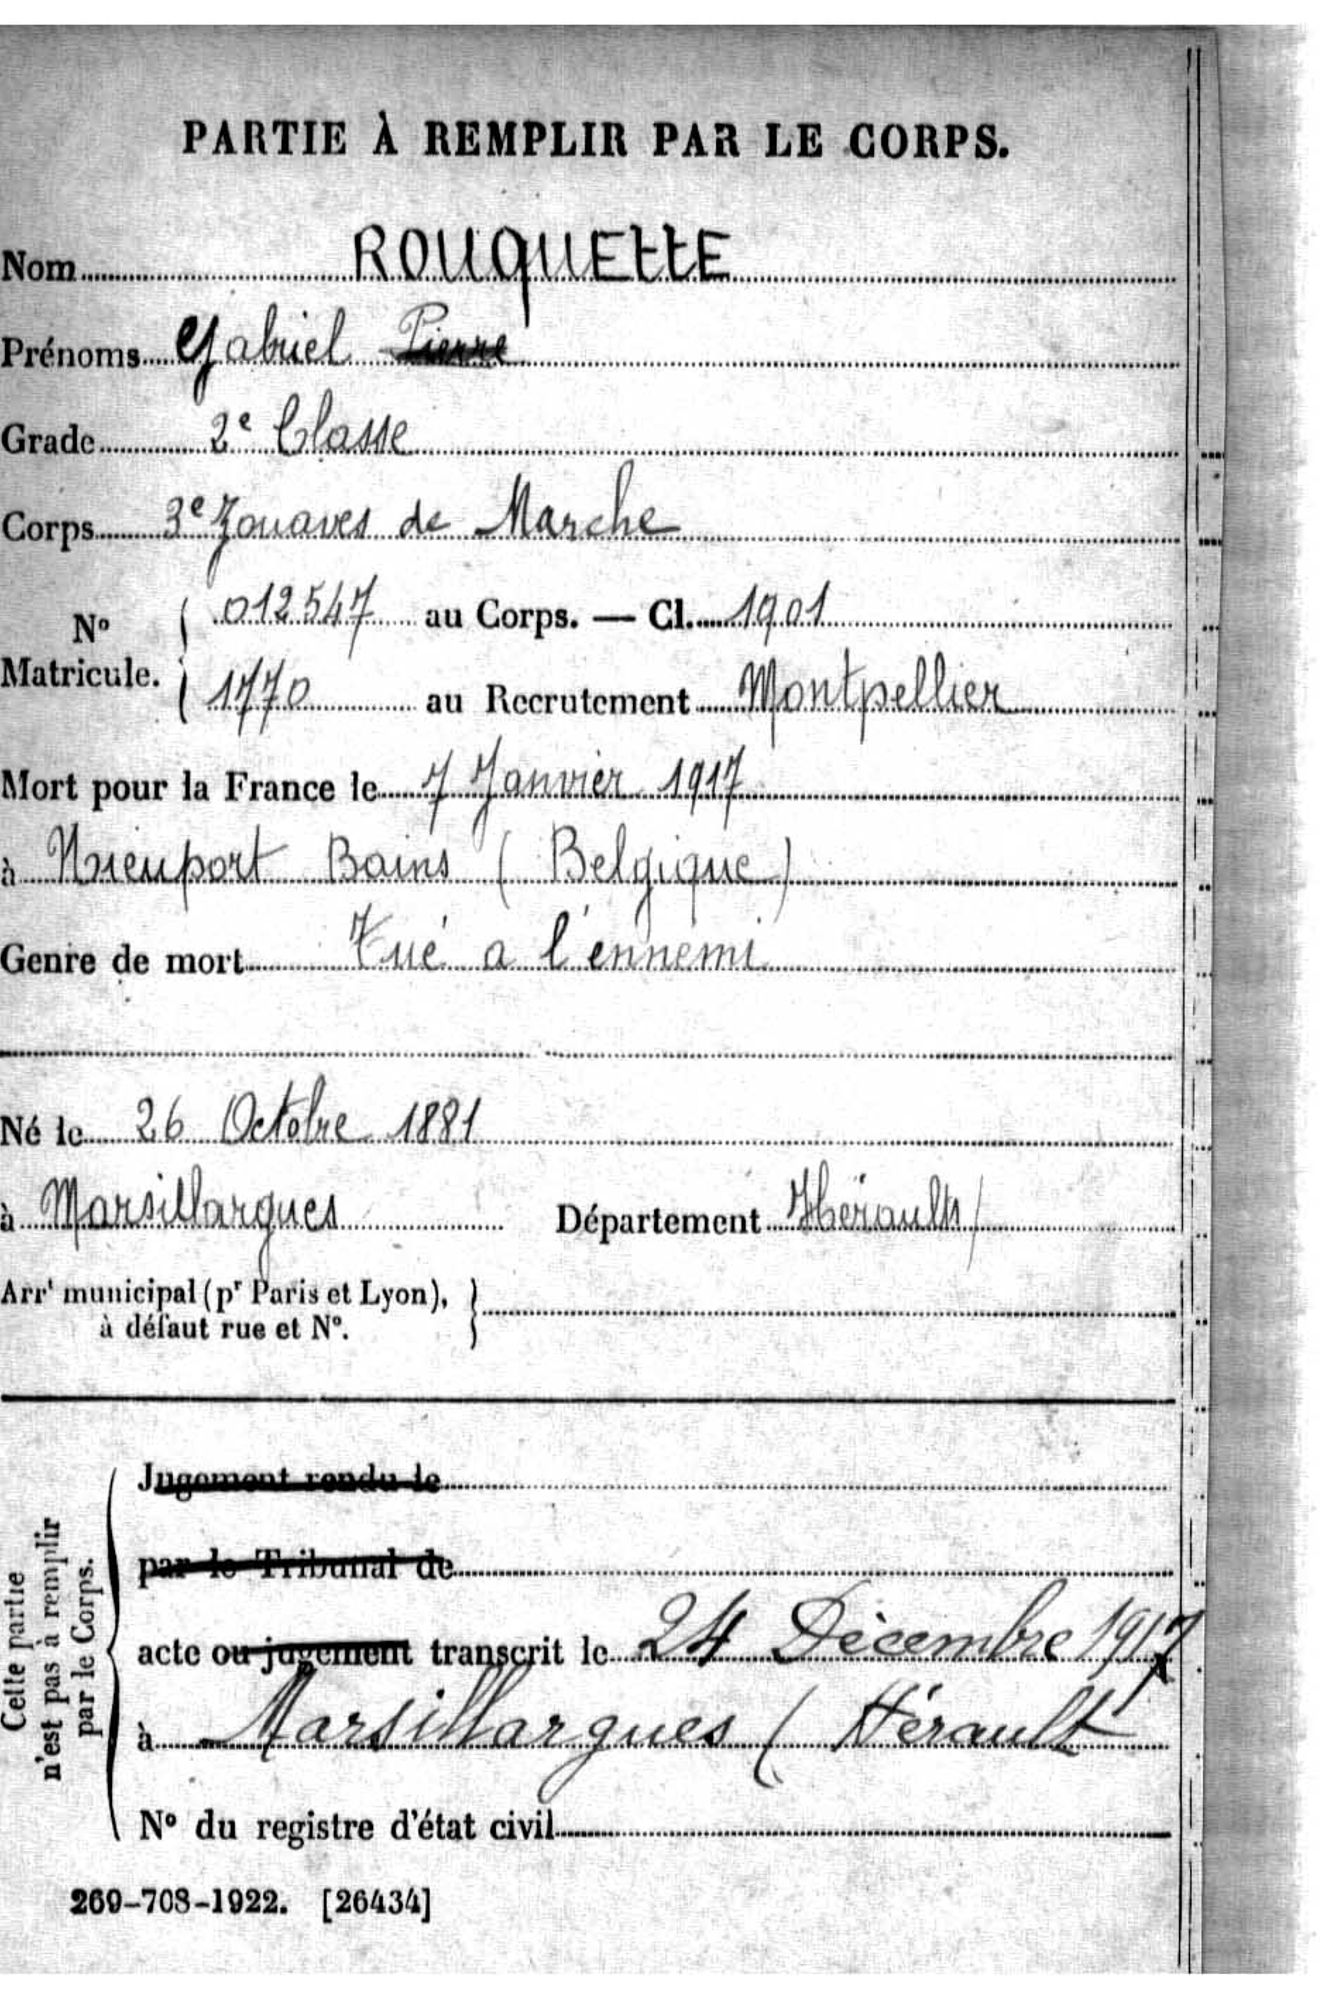 PARTIE À REMPLIR PAR LE CORPS.
Nom ROUQUETTE
Prénoms Gabriel Pierre
Grade 2e Classe
Corps 3e Zouaves de Marche
No Matricule. 012547 au Corps. — Cl. 1901
1770 au Recrutement Montpellier
Mort pour la France le 7 Janvier 1917
à Nieuport Bains ( Belgique )
Genre de mort Tué a l'ennemi
Né le 26 Octobre 1881
à Marsillargues Département Hérault
Arrt municipal (pr Paris et Lyon),
à défaut rue et No.
Cette partie
n'est pas à remplir
par le Corps.
Jugement rendu le
par le Tribunal de
acte ou jugement transcrit le 24 Décembre 1917
à Marsillargues ( Hérault
No du registre d'état civil
269-708-1922. [26434]